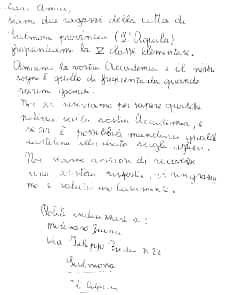 Cari Amici,
siamo due ragazzi della città di
Sulmona provincia (L'Aquila)
frequentiamo la V classe elementare.
Amiamo la vostra Accademia e il nostro
sogno è quello di frequentarla quando
saremo grandi.
Noi vi scriviamo per sapere qualche
notizia sulla vostra Accademia, e
se vi è possibile mandarci qualche
illustrato sugli aerei.
Noi siamo ansiosi di ricevere
una vostra risposta, vi ringraziamo
e saluti
indirizzare a:
via Filippo n 22
Sulmona
L'Aquila